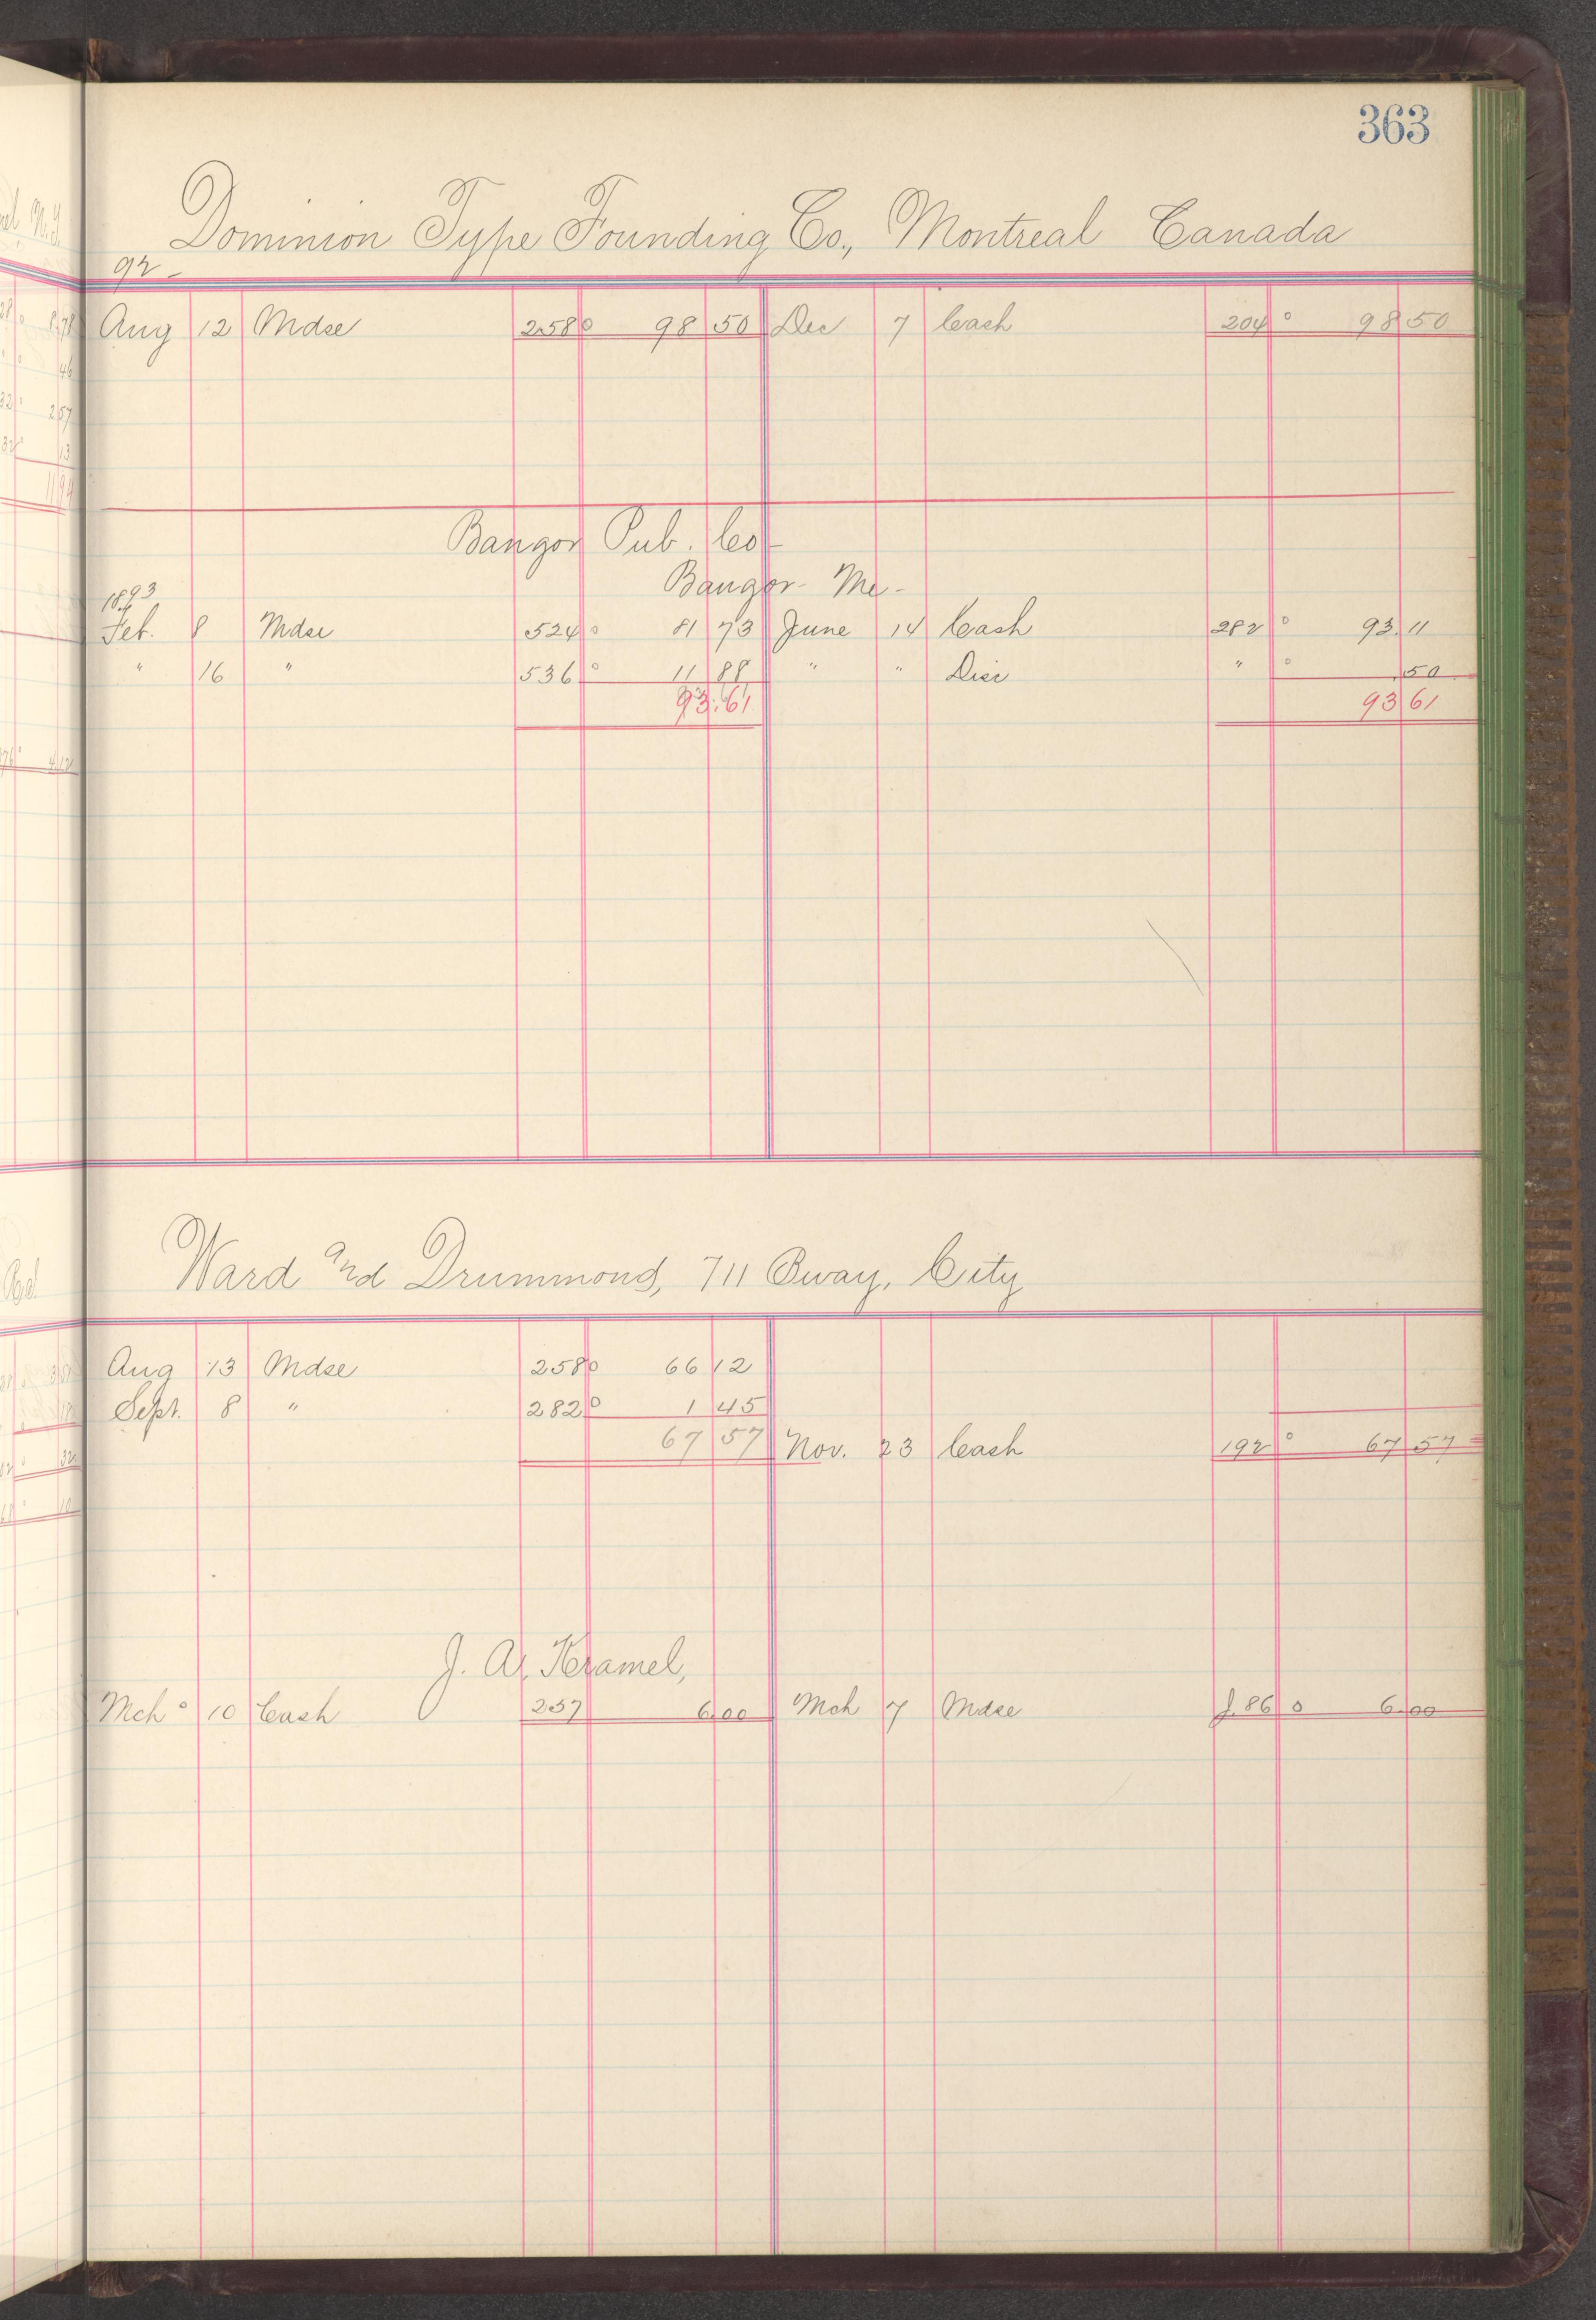 363
Dominion Type Founding Co., Montreal Canada
92 -
Aug 12 Mdse 258 0 98 50 Dec 7 Cash 204 0 98 50
Bangor Pub. Co-
Bangor- Me-
1893
Feb. 8 Mdse 524 0 81 73 June 14 Cash 282 0 93.11
" 16 " 536 0 11 88 " " Disc " 0 .50
93.61 93 61
Ward and Drummond, 711 Bway, City
Aug 13 Mdse 258 0 66 12
Sept. 8 " 282 0 1 45
67 57 Nov. 23 Cash 192 0 67 57
J. A. Kramel,
Mch 0 10 Cash 237 6.00 Mch 7 Mdse J. 86 0 6.00